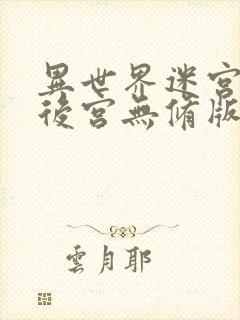 異世界迷宮
後宮無修版
雲月耶